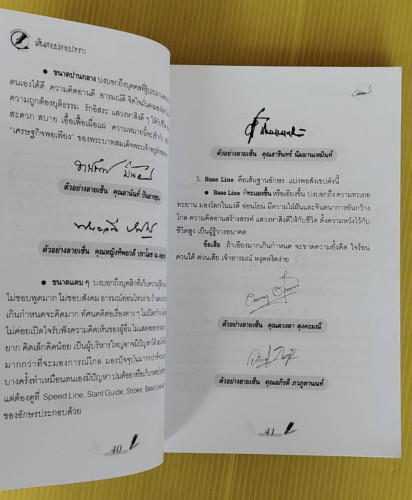 เส้นสายปลายปากกา
● ขนาดปานกลาง บ่งบอกถึงบุคคลที่รู้ประมาณ
ตนเองได้ดี ความคิดอ่านดี อารมณ์ดี จิตใจมั่นคง
ความถูกต้องยุติธรรม รักอิสระ แสวงหาสิ่งดี ๆ ให้กับ
สะดวก สบาย เอื้อเฟื้อเผื่อแผ่ ความหมายนี้จะเข้ากับ
"เศรษฐกิจพอเพียง" ของพระบาทสมเด็จพระเจ้าอยู่หัว
ตัวอย่างลายเซ็น คุณอานันท์ ปันยารชุน
ตัวอย่างลายเซ็น คุณหญิงทิพาวดี ปราโมช ณ
● ขนาดแคบ ๆ บ่งบอกถึงบุคลิกที่เก็บความรู้สึก
ไม่ชอบพูดมาก ไม่ชอบสังคม อารมณ์อ่อนไหวง่าย ถ้าแคบ
เกินกำหนดจะคิดมาก ทัศนคติต่อเรื่องต่าง ๆ ไม่เปิดกว้าง
ไม่ค่อยเปิดใจรับฟังความคิดเห็นของผู้อื่น ไม่แสดงออก
ยาก คิดเล็กคิดน้อย เป็นผู้บริหารใหญ่อาจมีปัญหาได้
มากกว่าที่จะมองการณ์ไกล มองปัจจุบันมากกว่า
บางครั้งทำเหมือนตนเองมีปัญหา ปมด้อย
แต่ต้องดูที่ Speed Line, Slant Guide, Stroke, Base Line
ของอักษรประกอบด้วย
40
ตัวอย่างลายเซ็น คุณธารินทร์ นิมมานเหมินท์
3. Base Line คือเส้นฐานอักษร แบ่งพอสังเขปดังนี้
● Base Line ที่ทะแยงขึ้น หรือเอียงขึ้น บ่งบอกถึง ความทะเยอ
ทะยาน มองโลกในแง่ดี อ่อนโยน มีความใฝ่ฝันและจินตนาการอันกว้าง
ไกล ความคิดอ่านสร้างสรรค์ แสวงหาสิ่งดีให้กับชีวิต ตั้งความหวังไว้กับ
ชีวิตสูง เป็นผู้รู้วางอนาคต
ข้อเสีย ถ้าเอียงมากเกินกำหนด จะขาดความยั้งคิด ใจร้อน
ด่วนได้ ด่วนเสีย เจ้าอารมณ์ หงุดหงิดง่าย
ตัวอย่างลายเซ็น คุณดวงตา ตุงคะมณี
ตัวอย่างลายเซ็น คุณอภิรดี ภวภูตานนท์
41